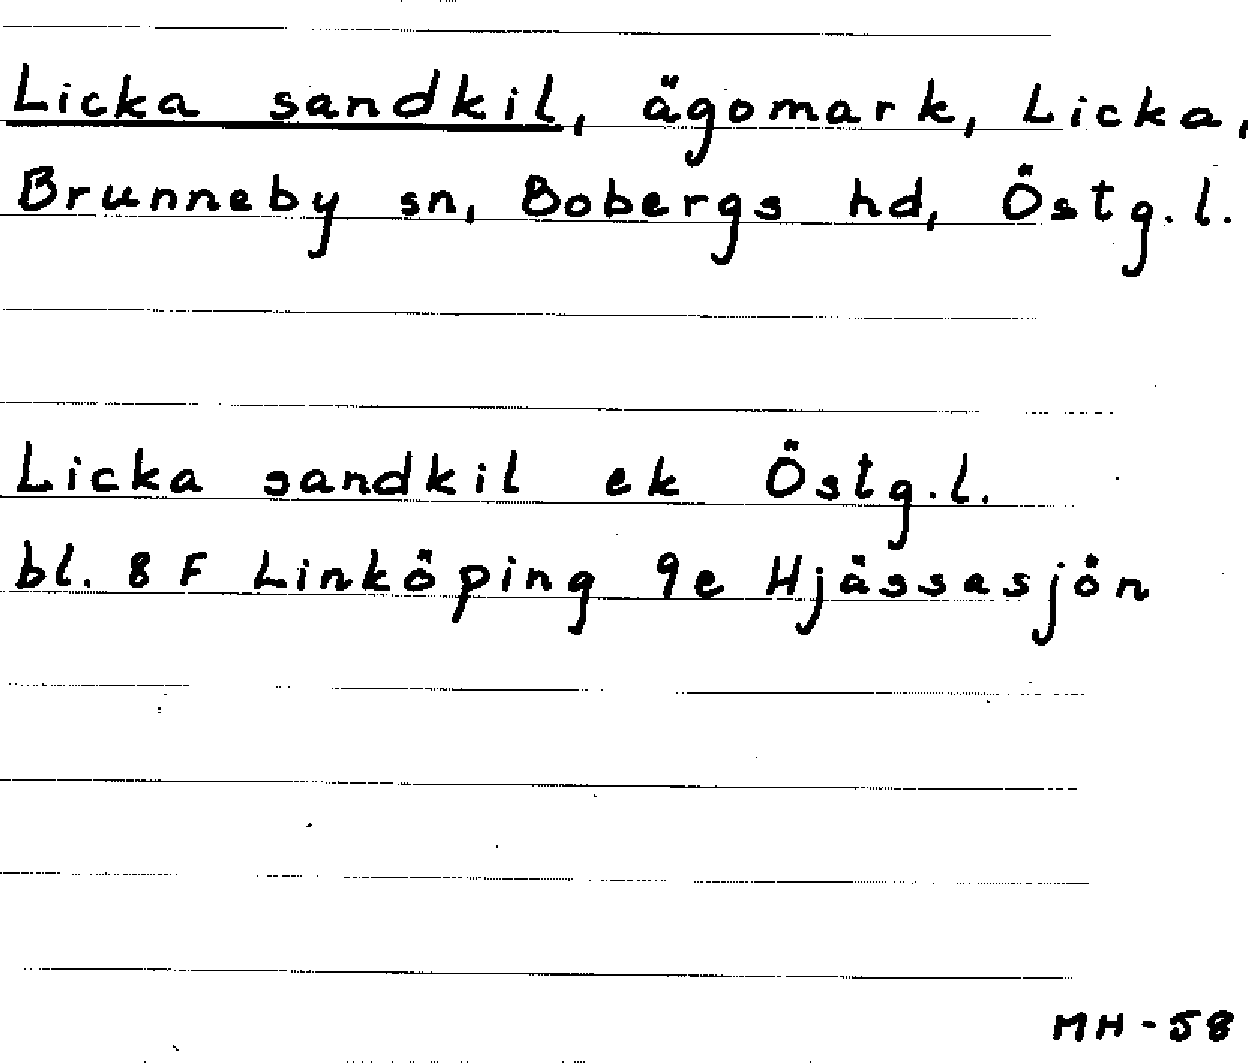 Licka sandkil, ägomark, Licka,
Brunneby sn, Bobergs hd, Östg.l.
Licka sandkil ek Östg.l.
bl. 8 F Linköping 9e Hjässasjön
MH-58